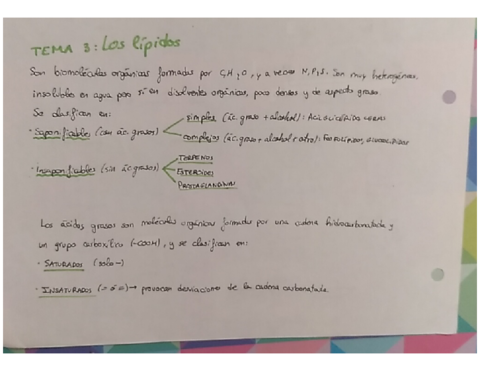 TEMA 3: Los lípidos
Son biomoléculas orgánicas formadas por C,H,O, y a veces N,P,S. Son muy heterogéneas,
insolubles en agua pero sí en disolventes orgánicos, poco densos y de aspecto graso.
Se clasifican en:
· Saponificables (con ác. grasos)
simples (ác. graso + alcohol): ACILGLICÉRIDOS
complejos (ác. graso + alcohol + otro): FOSFOLÍPIDOS,
· Insaponificables (sin ác. grasos)
TERPENOS
ESTEROIDES
PROSTAGLANDINAS
Los ácidos grasos son moléculas orgánicas formadas por una cadena hidrocarbonatada y
un grupo carboxílico (-COOH), y se clasifican en:
· SATURADOS (solo -)
· INSATURADOS (= ó ≡) → provocan desviaciones de la cadena carbonatada.